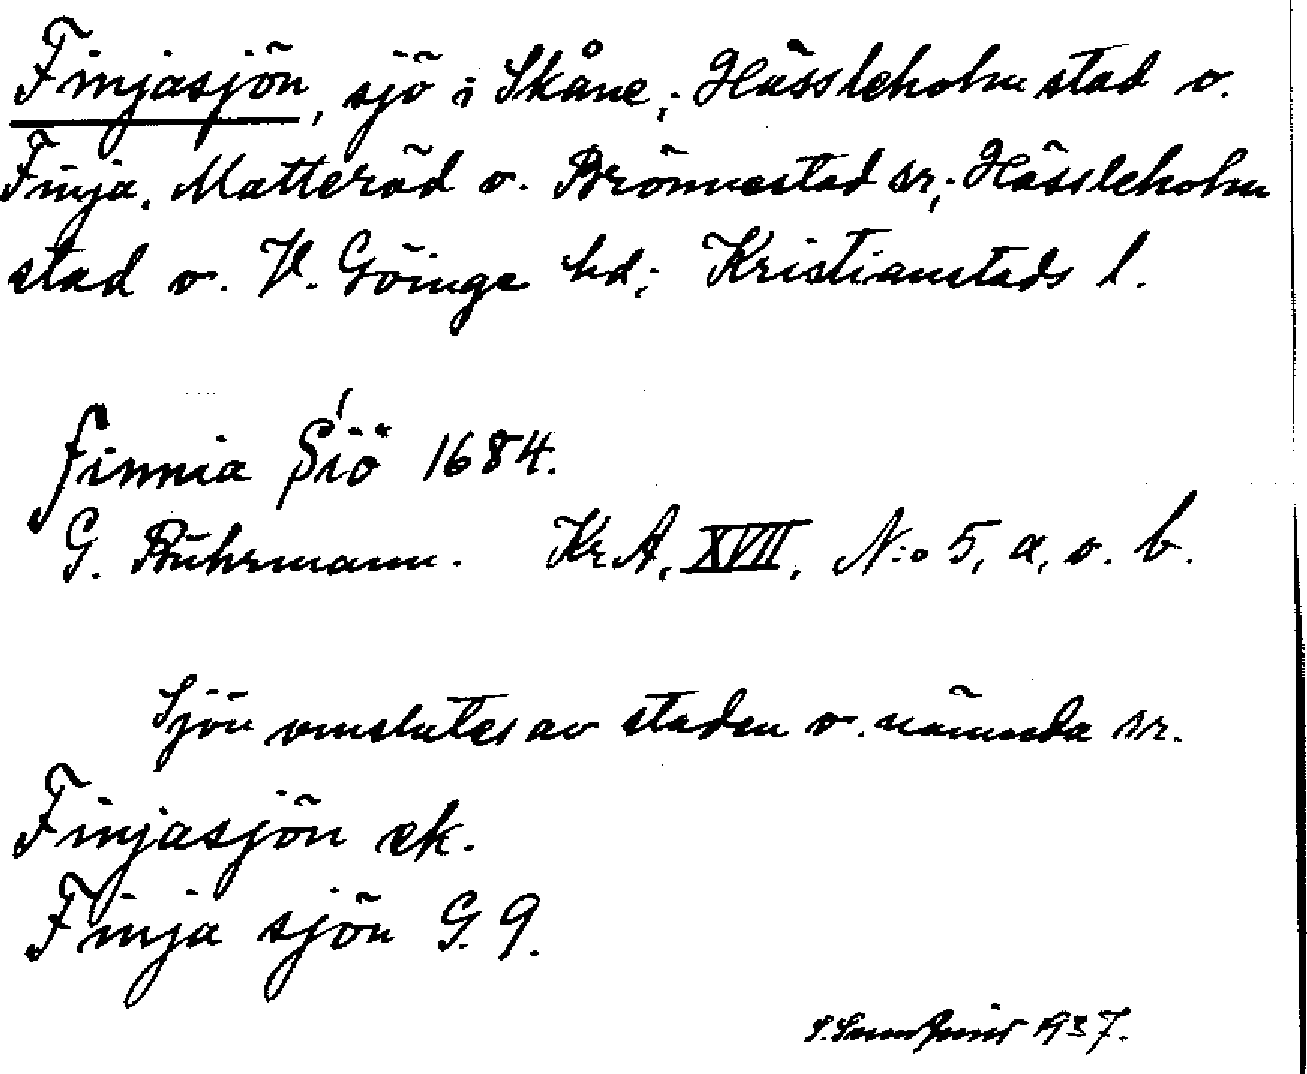 Finjasjön, sjö i Skåne; Hässleholm stad o.
Finja, Matteröd o. Brönnestad sr; Hässleholm
stad o. V. Göinge hd; Kristianstads l.
finnia Siö 1684.
G. Buhrmann. Kr.A. XVII, N:o 5, a, o. b.
Sjön omslutes av staden o. nämnda sr.
Finjasjön ek.
Finja sjön G. 9.
1937.